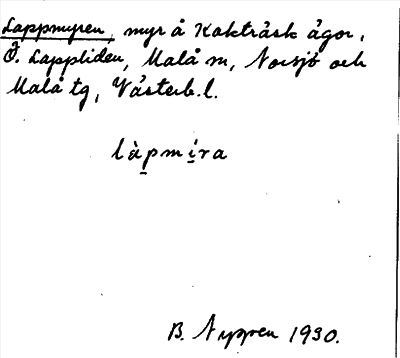 Lappmyren, myr å Kokträsk ägor,
Ö. Lappliden, Malå sn, Norsjö och
Malå tg, Västerb. l.
là̱pmi̱ra
B. Nyppen 1930.